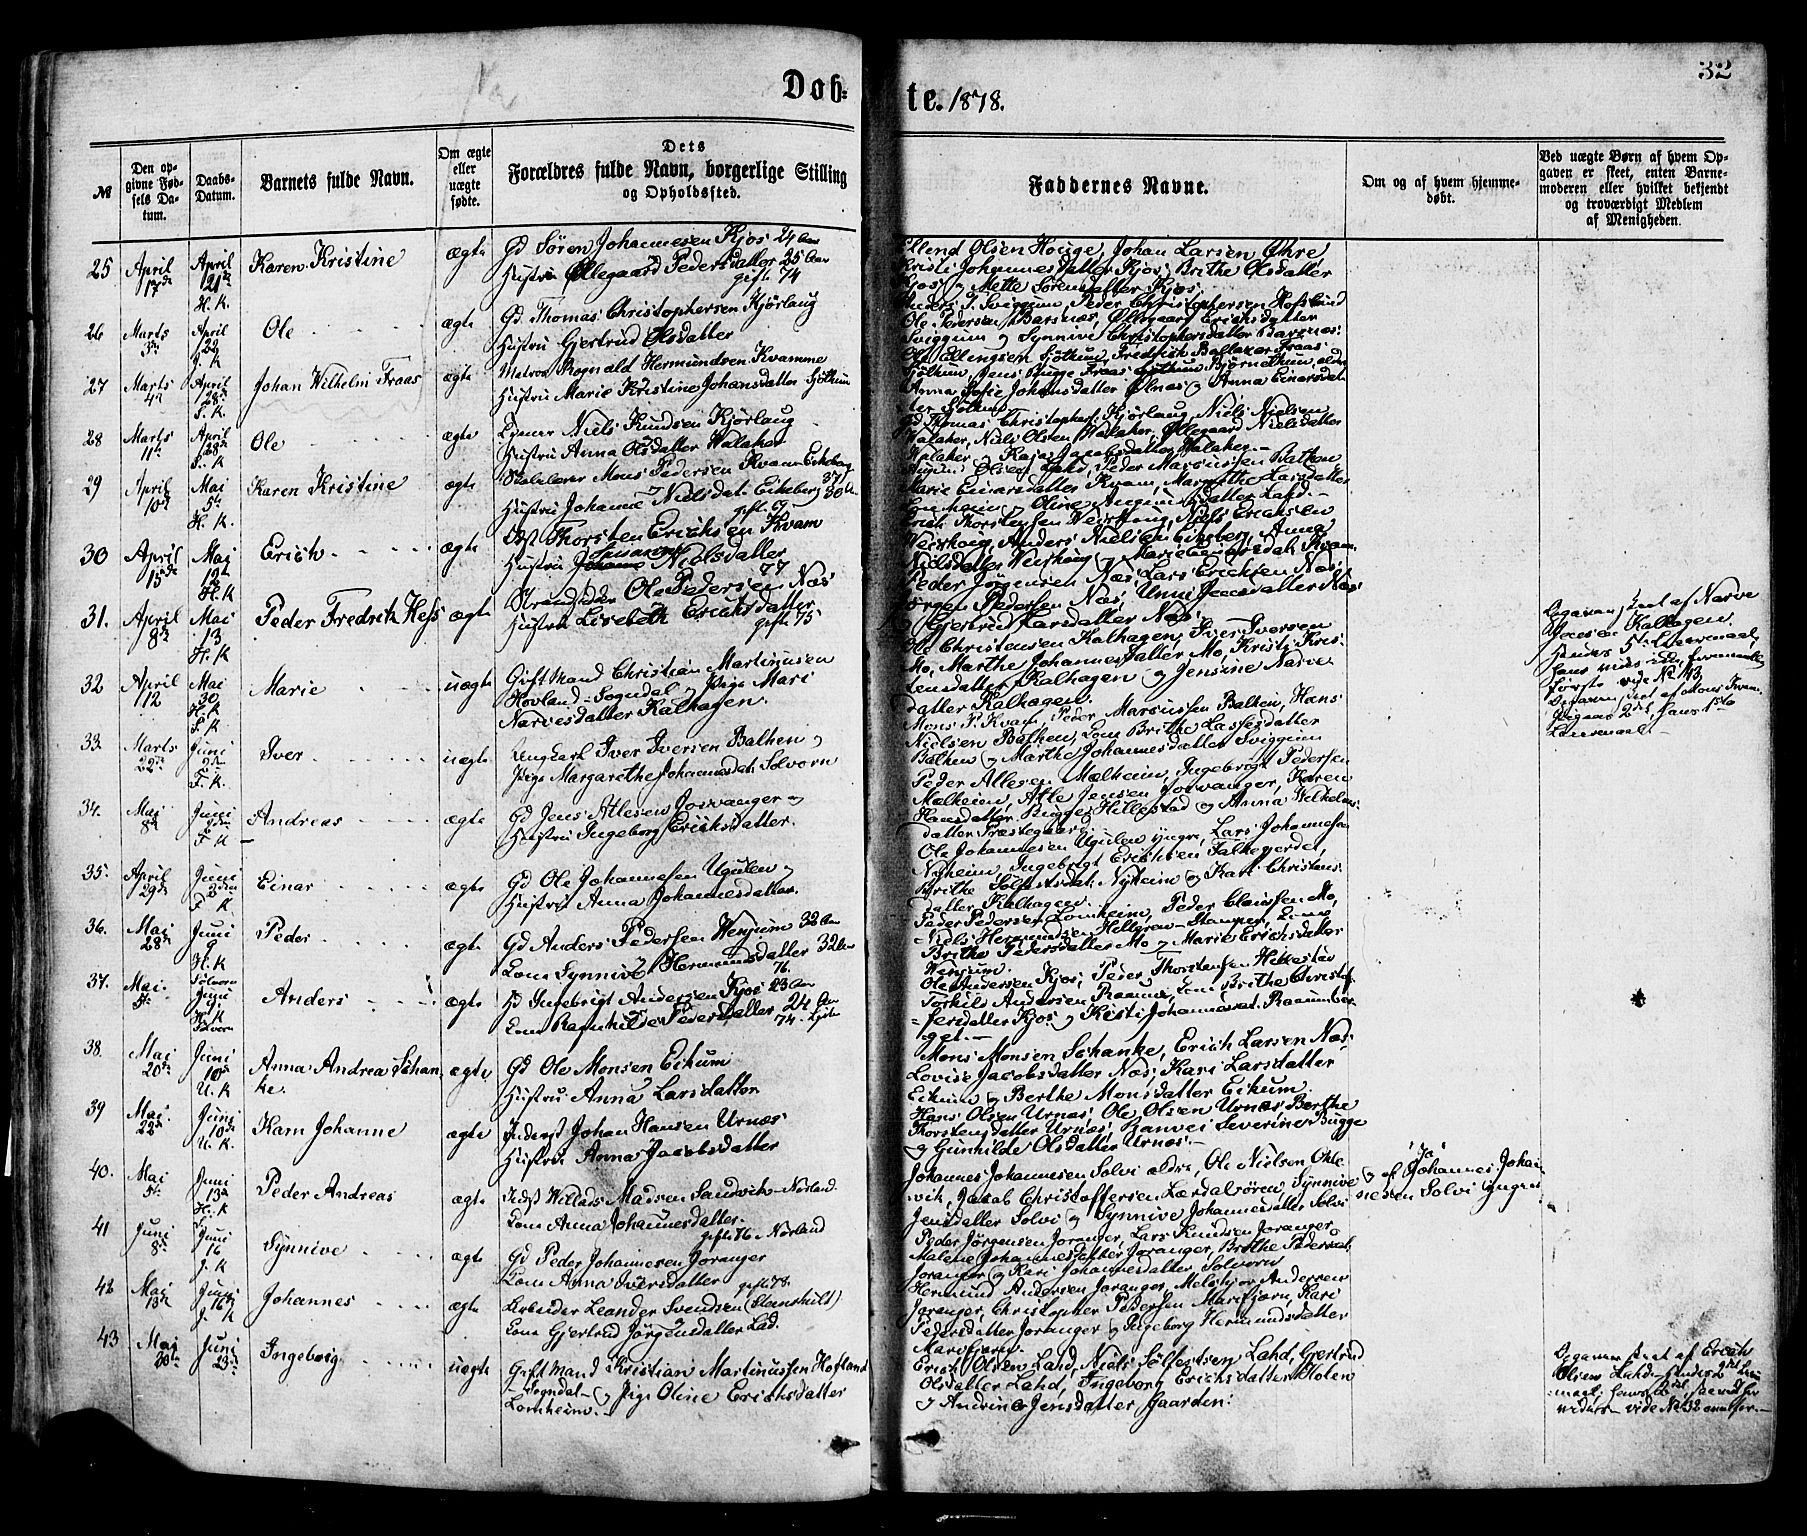 Døb=
te. 1878.
32
№
Den op-
givne Fød-
sels Da-
tum.
Daabs-
Datum.
Barnets fulde Navn.
Om ægte
eller
uægte
fødte.
Dets
Forældres fulde Navn, borgerlige Stilling
og Opholdssted.
Faddernes Navne.
Om og af hvem hjemme-
døbt.
Ved uægte Børn af hvem Op-
gaven er skeet, enten Barne-
moderen eller hvilket bekjendt
og troværdigt Medlem
af Menigheden.
25 April 17de April 21de H. K. Karen Kristine ægte
Gd Søren Johannesen Kjos 24 Aar
Hustru Øllegaard Pedersdatter 25 Aar
gift 74
Ellend Olsen Houge, Johan Larsen Øhre,
Kristi Johannesdatter Kjos, Brithe Olsdatter
Kjos og Mette Sørensdatter Kjos.
26 Marts 3de April 22 Ole ægte
Gd. Thomas Christophersen Kjørlaug
Hustru Gjertrud Olsdatter
Sviggum, Peder Christophersen Hofslund
Ole Pedersen Barsnæs, Øllegaard Erichsdatter
Sviggum og Synnive Christophersdatter Barsnæs.
27 Marts 4de April 28de Johan Wilhelm Fraas ægte
Matros Rognald Hermundsen Kvamme
Hustru Marie Kristine Johansdatter Sjøthun
Ole Ellingsen Sjøthun, Fredrich Baltazer Fraas
Sjøthun, Jens Bugge Fraas
Anna Sofie Johansdatter Ølnæs og Anna Einarsdat-
ter Sjøthun
28 Marts 11te April 28de Ole ægte
Niels Knudsen Kjørlaug
Hustru Anna Olsdatter Walaker
Gd Thomas Christophers. Kjørlaug, Niels Nielsen
Walaker, Niels Olsen Walaker, Øllegaard Nielsdatter
Walaker og Kari Jacobsdatter Walaker.
29 April 10de Mai 5te H. K. Karen Kristine ægte
Mons Pedersen Kvam Eikeberg
Hustru Johanne Nielsdat. Eikeberg
gift 67
Olsen Lahd, Peder Marcussen Balken
Marie Einarsdatter Kvam, Margrethe Larsdatter
og Oline datter Lahd.
30 April 15de Mai 12te H. K Erich ægte
Thorsten Erichsen Kvam
Hustru Johanne Nielsdatter
77
Erich Thorstensen Weirhoug, Niels Erichsen
Weirhoug, Anders Nielsen Eikeberg, Anna
Nielsdatter Weirhoug og Marie Einarsdat. Kvam.
31. April 8de Mai 13 H. K Peder Fredrik Hess ægte
Strandsidder Ole Pedersen Næs
Hustru Lisebeth Erichsdatter
gift 75
Peder Jørgensen Næs, Lars Erichsen Næs,
Jørgen Pedersen Næs, Unni Jensdatter Næs
og Gjertrud Larsdatter Næs.
32 April 12 Mai 30 H. K Marie uægte
Gift Mand Christian Martinusen
Hovland Sogndal og Pige Mari
Narvesdatter Kalhagen.
Ole Christensen Kalhagen, Iver Iversen
Mo, Marthe Johannesdatter Mo, Kristi Kris-
tensdatter Kalhagen og Jensine Narve-
datter Kalhagen.
Opgaven skeet af Narve
Jensen Kalhagen.
Hendes 5te Leiermaal,
første vide No 43.
33. Marts 22de Juni F. K. Iver uægte
Ungkarl Iver Iversen Balken og
Pige Margarethe Johannesdat. Solvorn
Mons P. Kvam, Peder Marcussen Balken, Hans
Nielsen Balken, Kone Brithe Lassesdatter
Balken og Marthe Johannesdatter Sviggum
Opgaven skeet af Mons Kvam.
Pigens 2det, hans 1ste
Leiermaal.
34. Mai 8de Juni F. K Andreas ægte
Gd Jens Atlesen Josvanger og
Hustru Ingeborg Erichsdatter.
Peder Allesen Mælheim, Ingebrigt Pedersen
Mælheim, Atle Jensen Josvanger, Karen
Hansdatter Bugge Hillestad og Anna Wilhelms-
datter Præstegaard
35. April 29de Juni F. K. Einar ægte
Gd Ole Johannesen Ugulen og
Hustru Anna Johannesdatter.
Ole Johannesen Ugulen yngre, Lars Johannesen
Nyheim, Ingebrigt Erichsen Falkegjerdet,
Brithe Sølfestsdat. Nyheim og Kari Christens-
datter Kalhagen.
36. Mai 28de Juni 9 H. K Peder ægte
Gd Anders Pedersen Wenjum 32 Aar
Kone Synnive Hermunsdatter 32 Aar
76.
Peder Pedersen Lomheim, Peder Clausen Mo,
Niels Hermundsen Hellgrev
Brithe Pedersdatter Mo og Marie Erichsdatter
Wenjum.
37. Mai 5te Solvorn Juni 9. H. K Solvorn Anders ægte
Gd Ingebrigt Andersen Kjos 23 Aar
Kone Ragnhilde Pedersdatter 24 Aar
74.
Ole Andersen Kjos, Peder Thorstensen Hillestad
Torkild Andersen Raaum, Kone Brithe Christof-
fersdatter Kjos og Kristi Johannesdat. Raaumber-
get.
38. Mai 20de Juni 10de U. K Anna Andrea Schan-
ke. ægte
Gd Ole Monsen Eikum
Hustru Anna Larsdatter
Mons Monsen Schanke, Erich Larsen Næs
Lovise Jacobsdatter Næs, Kari Larsdatter
Eikum og Berthe Monsdatter Eikum.
39 Mai 22de Juni 10de U. K. Karn Johanne ægte
Inderst Johan Hansen Urnæs
Hustru Anna Jacobsdatter
Hans Olsen Urnæs, Ole Olsen Urnæs, Berthe
Thorstensdatter Urnæs, Hanvei Severine Bugge
og Gunhilde Olsdatter Urnæs.
40. Mai 5te Juni 13de H. K Peder Andreas ægte
Willads Madsen Sandvik Norland.
Kone Anna Johannesdatter.
gift 76 Norland
Johannes Johannesen Solvi ældre, Ole Nielsen Ohle-
vik, Jacob Christoffersen Lærdalsøren, Synnive
Jensdatter Solvi og Synnive Johannesdatter Solvi
"Ja"
og af Johannes Johan-
nesen Solvi yngre
41 Juni 8de Juni 16 J. K Synnive ægte
Gd Peder Johannesen Joranger
Kone Anna Iversdatter gift 78.
Peder Jørgensen Joranger, Lars Knudsen Joranger
Malene Johannesdatter Joranger, Brithe Pedersdat.
Joranger og Kari Johannesdatter Solvorn
42 Mai 13de Juni 16de J. K Johannes ægte
Arbeider Leander Svendsen
Kone Gjertrud Jørgensdatter Lad.
Hermund Andersen Joranger, Melchior Andersen
Joranger, Christopher Pedersen Marifjæren, Kari
Pedersdatter Joranger og Ingeborg Hermundsdatter
Marifjæren.
43 Mai 20de Juni 23de Ingeborg uægte
Gift Mand Kristian Martinussen Hofland
Sogndal og Pige Oline Erichsdatter
Lomheim.
Erich Olsen Lahd, Niels Sølfestsen Lahd, Gjertrud
Olsdatter Lahd, Ingeborg Erichsdatter Molen
og Andrine Jensdatter Gaarden.
Opgaven skeet af Erich
Olsen Lahd hendes 2det Leier-
maal, hans
vide No 32